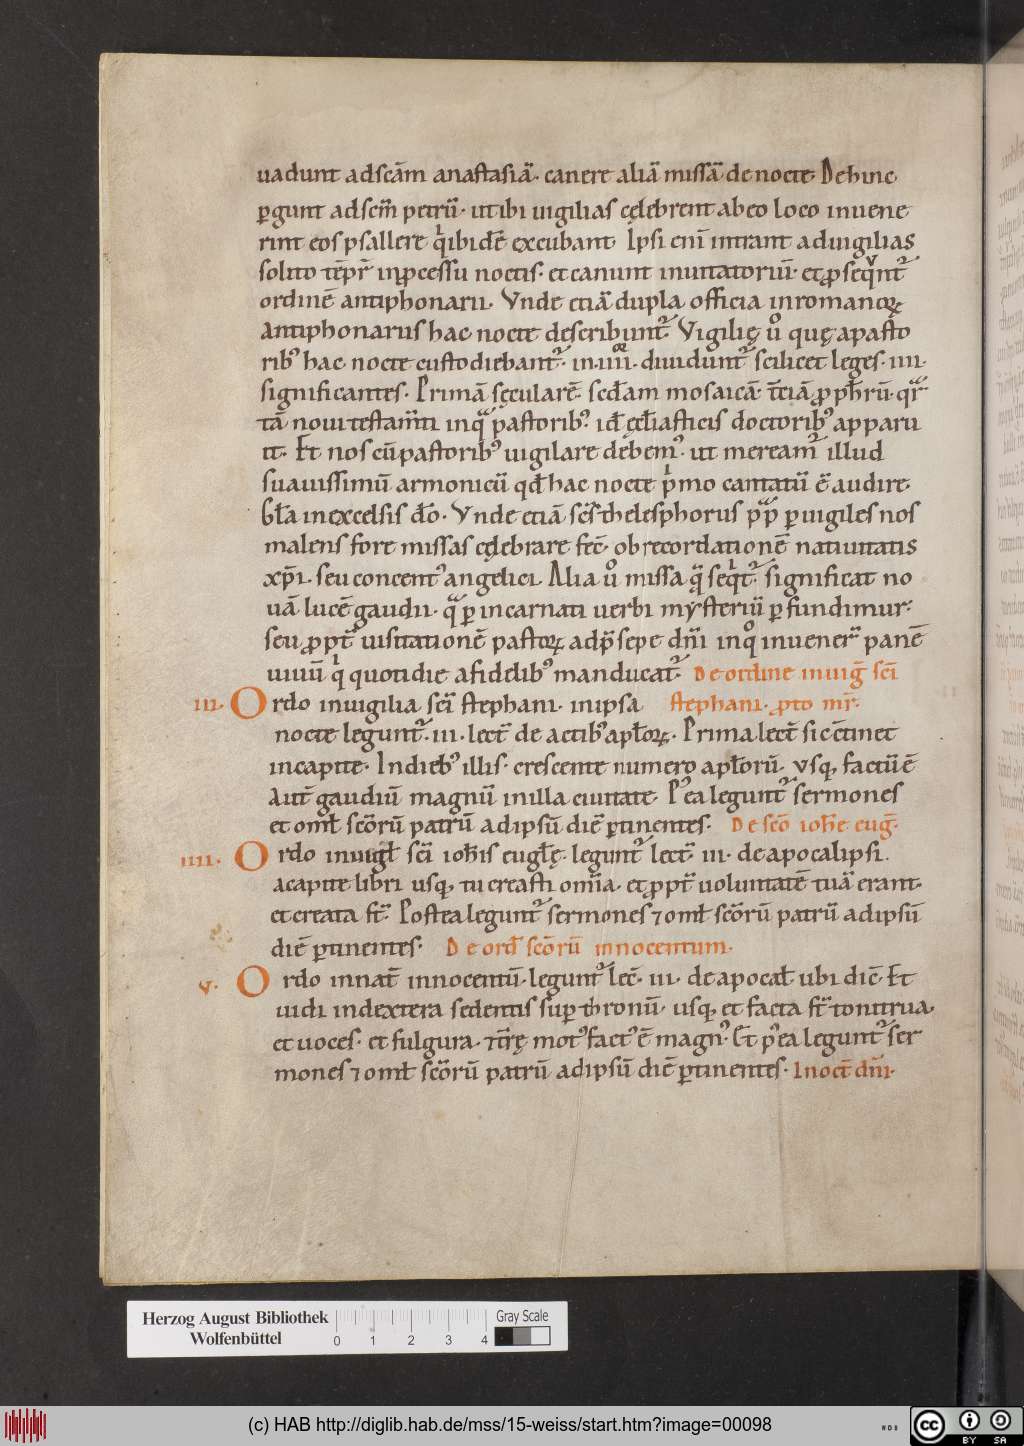 uadunt adscām anastasiā· canere aliā missā de nocte· Dehinc
ꝑgunt adscm̄ petrū· ut ibi uigilias cęlebrent ab eo loco inuene
rint eos psallere qͥ ibidē excubant· Ipsi eni̅ intrant aduigilias
solito tēpr̄ inꝓcessu noctis· et canunt inuitatoriū· et ꝓseqͮnt᷑
ordinē antiphonarii· Vnde etiā dupla officia inromanoꝝ
antiphonariis hac nocte describunt᷑· Vigilię uͦ quę apasto
ribꝰ hac nocte custodiebant᷑· in·iiii· diuidunt᷑ scilicet leges· iiii·
significantes· Primā sęcularē· scd̄am mosaicā· t̄ciā ꝓph̄rū· qr̄
tā noui testam̄ti inqͣ pastoribꝰ· id̄ ęcl̄iasticis doctoribꝰ apparu
it· Et nos cū pastoribꝰ uigilare debemꝰ· ut meream᷑ illud
suauissimū armonicū qd̄ hac nocte pͥmo cantatū ē audire·
Gl̄a inexcelsis dō· Vnde etiā sc̄s thelesphorus pͣpͣ ꝑuigiles nos
malens fore missas cęlebrare fec̄· ob recordationē natiuitatis
xp̄i· seu concentꝰ angelici· Alia uͦ missa qͣ seqͥt᷑· significat no
uā lucē gaudii· qͣ ꝑ incarnati uerbi mysteriū ꝑfundimur·
seu ꝓpt̄ uisitationē pastoꝝ adp̄sepe dn̄i inqͦ inuener̄ panē
uiuū qͥ quotidie afidelibꝰ manducat᷑· De ordine inuiḡ sc̄i
iii· Ordo inuigilia sc̄i stephani· inipsa stephani· ꝓto mr̄·
nocte legunt᷑· iii· lect̄ de actibꝰ apl̄oꝝ· Prima lect̄ sic ɔ̄tinet
incapite· Indiebꝰ illis· crescente numero apl̄orū· usq, factū ē
aut̄ gaudiū magnū inilla ciuitate· Pꝰea legunt᷑ sermones
et oml̄ sc̄orū patrū adipsū diē ꝑtinentes· De scō ioh̄e euḡ·
iiii· Ordo inuigl̄ sc̄i ioh̄is eugl̄ę· legunt᷑ lect̄ iii· de apocalipsi·
acapite libri usq, tu creasti om̄ia· et ꝓpt̄ uoluntatē tuā erant·
et creata st̄· Postea legunt᷑ sermones ⁊ oml̄ sc̄orū patrū adipsū
diē ꝑtinentes· De ord̄ sc̄orū innocentum·
v· Ordo innat̄ innocentū· legunt᷑ lec̄· iii· de apocal̄ ubi dic̄· Et
uidi indextera sedentis suꝑ thronū· usq, et facta st̄ tonitrua·
et uoces· et fulgura· ⁊ t̄rę motꝰ factꝰ ē magnꝰ· Et pꝰea legunt᷑ ser
mones ⁊ oml̄ sc̄orū patrū adipsū diē ꝑtinentes· Inoct̄ dn̄i·
Herzog August Bibliothek
Wolfenbüttel
0 1 2 3 4
Gray Scale
(c) HAB http://diglib.hab.de/mss/15-weiss/start.htm?image=00098
cc BY SA